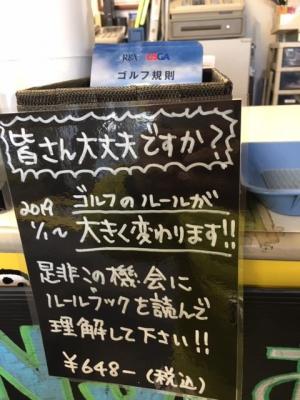 R&A USGA
ゴルフ規則
皆さん大丈夫ですか?
2019 ゴルフのルールが
1/1〜 大きく変わります!!
是非この機会に
ルールブックを読んで
理解して下さい!!
¥648-(税込)